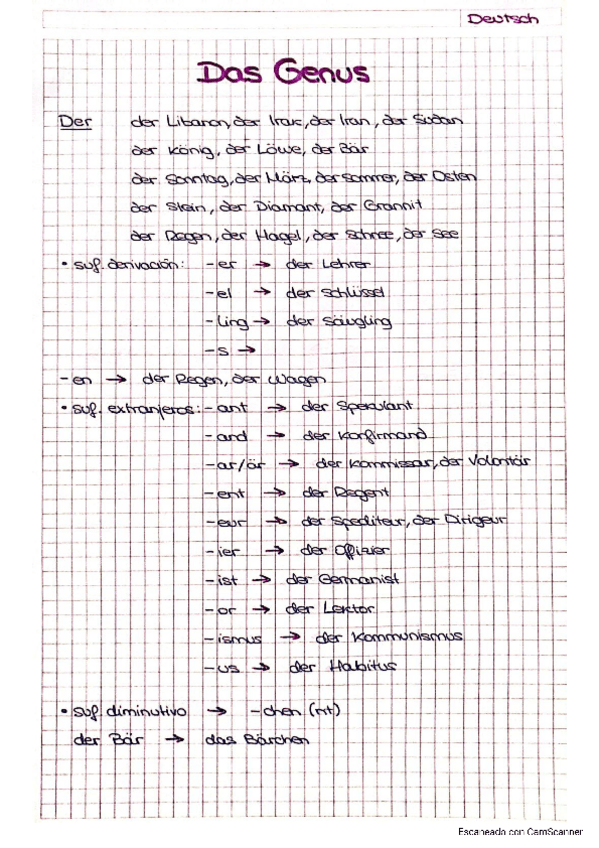 Deutsch
Das Genus
Der der Libanon, der Irak, der Iran, der Sudan
der König, der Löwe, der Bär
der Sonntag, der März, der Sommer, der Osten
der Stein, der Diamant, der Grannit
der Regen, der Hagel, der Schnee, der See
• suf. derivación: -er → der Lehrer
-el → der Schlüssel
-ling → der Säugling
-s →
-en → der Regen, der Wagen
• suf. extranjeros: -ant → der Spekulant
-and → der Korfirmand
-ar/är → der Kommissar, der Volontär
-ent → der Regent
-eur → der Spediteur, der Dirigeur
-ier → der Offizier
-ist → der Germanist
-or → der Lektor
-ismus → der Kommunismus
-us → der Habitus
• suf. diminutivo → -chen (nt)
der Bär → das Bärchen
Escaneado con CamScanner